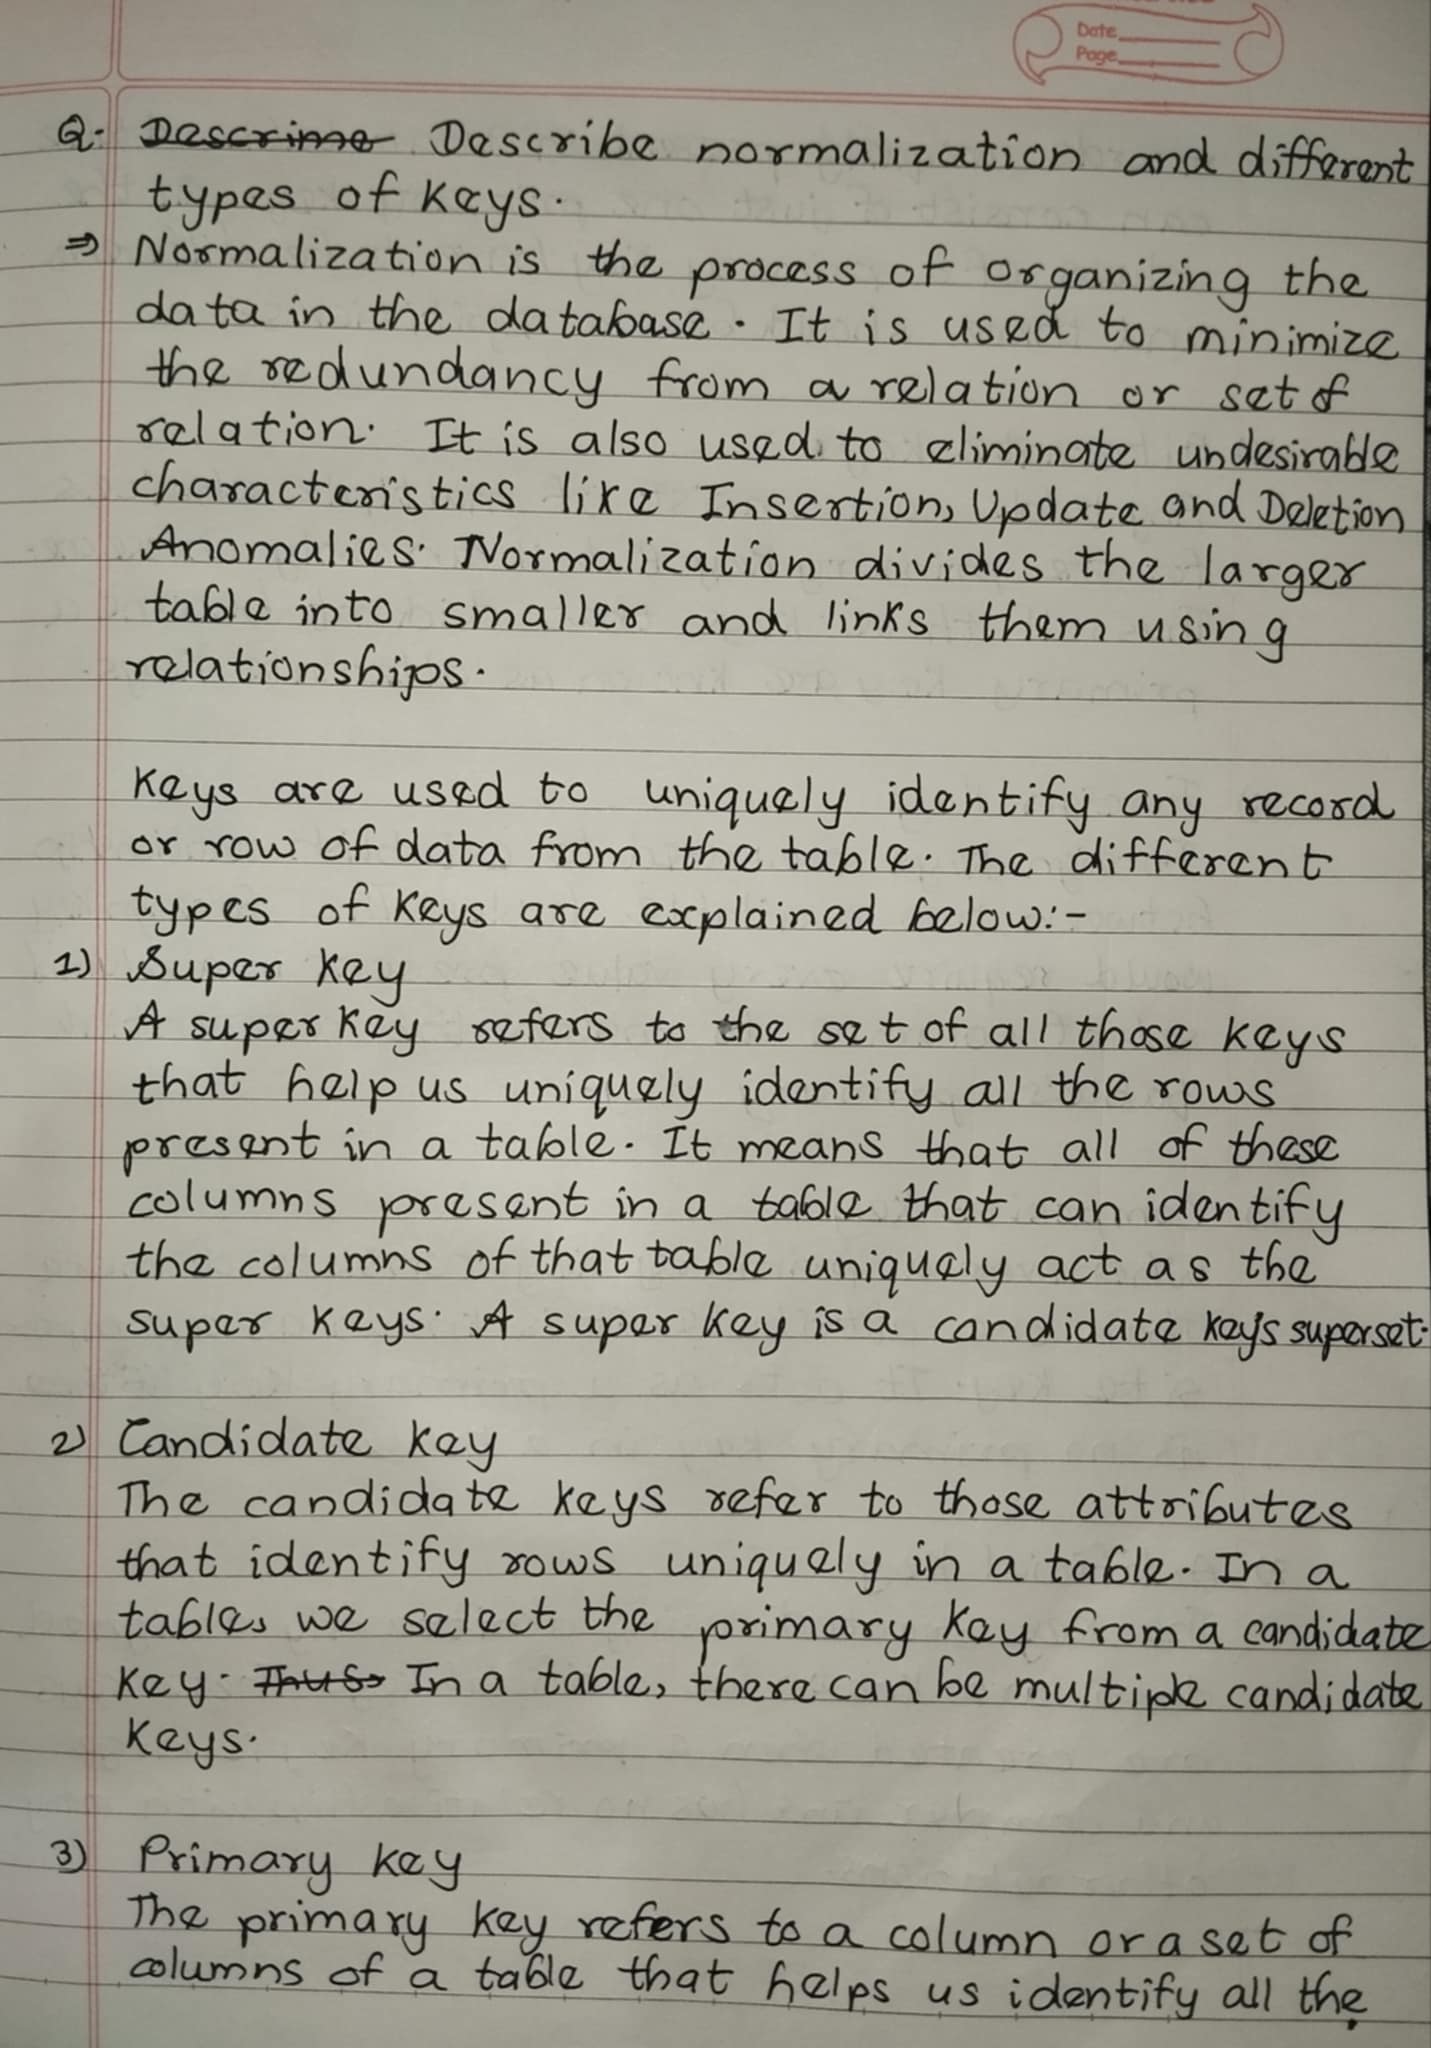 Date
Page
Q.- Describe normalization and different
types of keys.
⇒ Normalization is the process of organizing the
data in the database. It is used to minimize
the redundancy from a relation or set of
relation. It is also used to eliminate undesirable
characteristics like Insertion, Update and Deletion
Anomalies. Normalization divides the larger
table into smaller and links them using
relationships.
Keys are used to uniquely identify any record
or row of data from the table. The different
types of keys are explained below:-
1) Super key
A super key refers to the set of all those keys
that help us uniquely identify all the rows
present in a table. It means that all of these
columns present in a table that can identify
the columns of that table uniquely act as the
super keys. A super key is a candidate key's superset.
2) Candidate key
The candidate keys refer to those attributes
that identify rows uniquely in a table. In a
table, we select the primary key from a candidate
key. In a table, there can be multiple candidate
keys.
3) Primary key
The primary key refers to a column or a set of
columns of a table that helps us identify all the